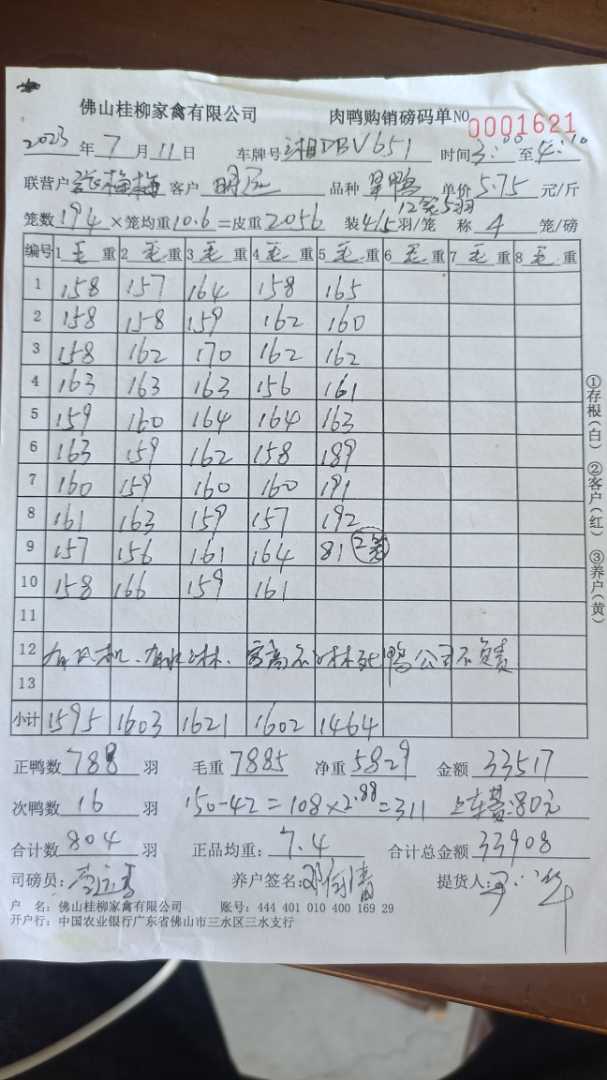 佛山桂柳家禽有限公司 肉鸭购销磅码单 NO 0001621
2023年7月11日 车牌号湘DBV651 时间3:00至4:10
联营户 梅梅 客户 明 品种 鸭 单价5.75元/斤
12笼5羽
笼数194×笼均重10.6=皮重2056 装4/5羽/笼 称4笼/磅
编号 1毛重 2毛重 3毛重 4毛重 5毛重 6毛重 7毛重 8毛重
1 158 157 164 158 165
2 158 158 159 162 160
3 158 162 170 162 162
4 163 163 163 156 161
5 159 160 164 164 163
6 163 159 162 158 189
7 160 159 160 160 191
8 161 163 159 157 192
9 157 156 161 164 81 2笼
10 158 166 159 161
11
12 有风机、有水淋、鸭公司不负责
13
小计 1595 1603 1621 1602 1464
正鸭数788羽 毛重7885 净重5829 金额33517
次鸭数16羽 150-42=108×2.88=311 上车费:80元
合计数804羽 正品均重:7.4 合计总金额33908
司磅员: 养户签名:邓 提货人:
户 名:佛山桂柳家禽有限公司 账号:444 401 010 400 169 29
开户行:中国农业银行广东省佛山市三水区三水支行
①存根(白) ②客户(红) ③养户(黄)